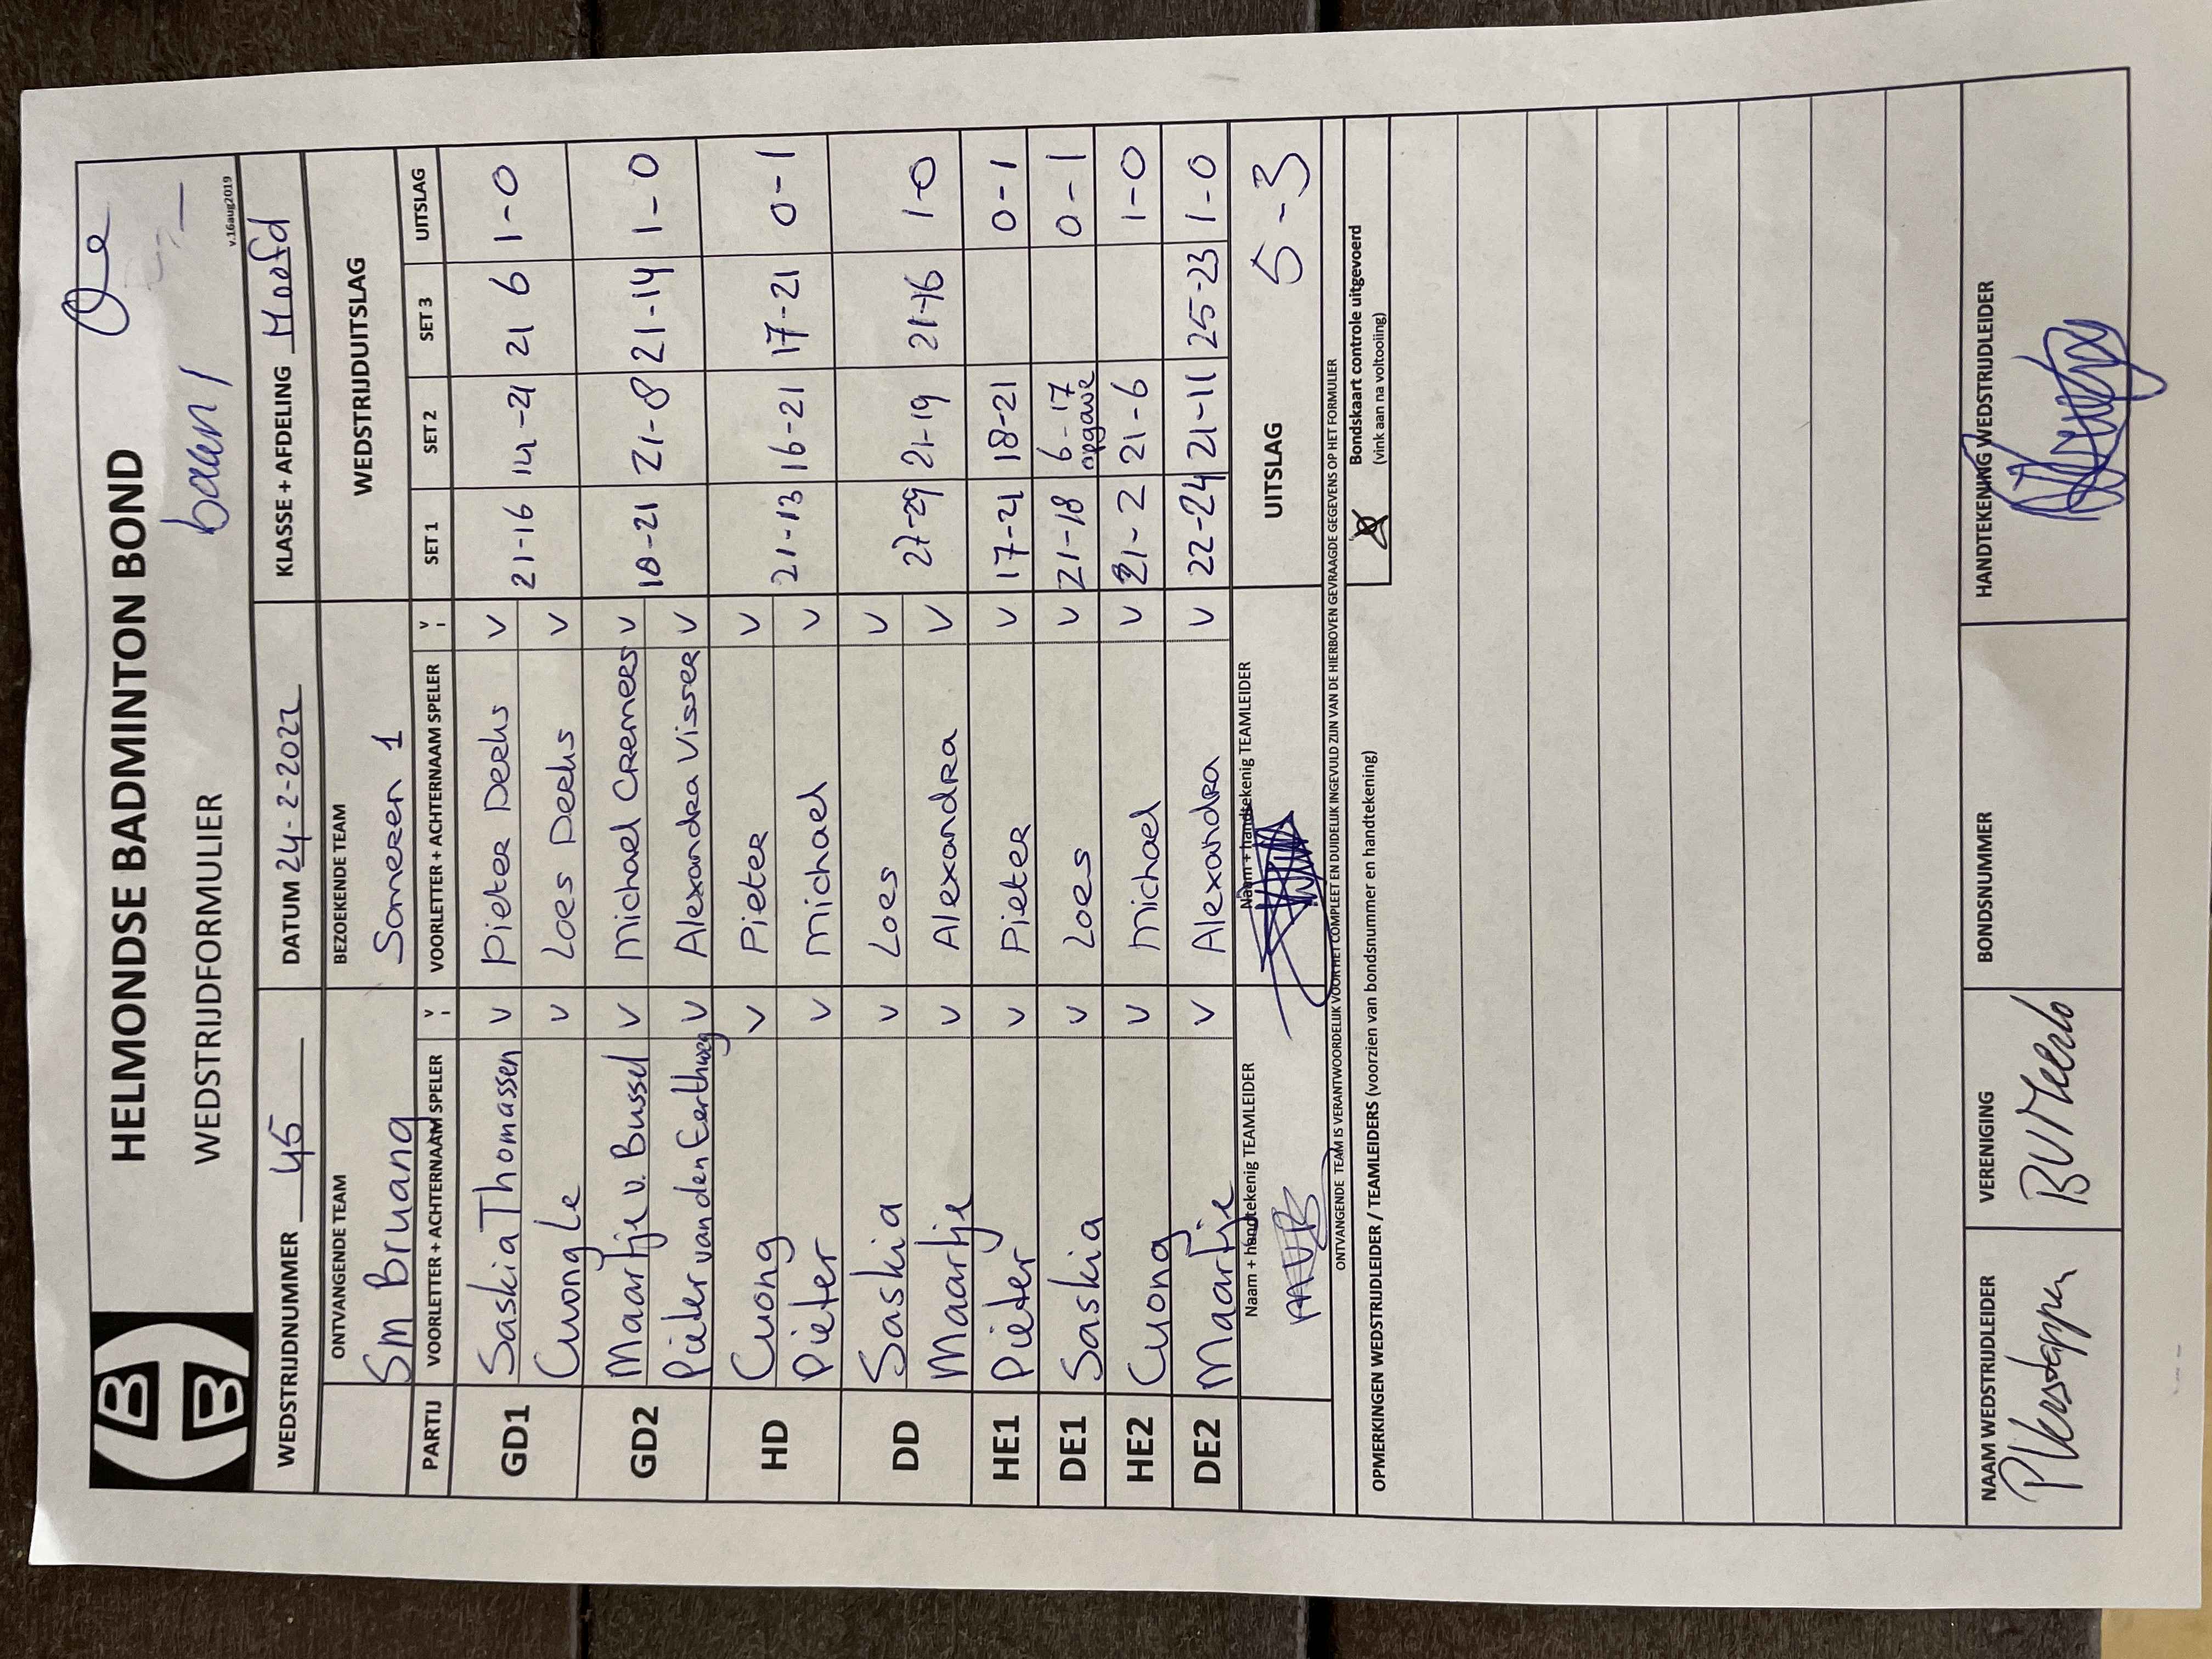 HELMONDSE BADMINTON BOND
WEDSTRIJDFORMULIER
baan 1
v.16aug2019
WEDSTRIJDNUMMER 45 DATUM 24-2-2022 KLASSE + AFDELING Hoofd
ONTVANGENDE TEAM BEZOEKENDE TEAM WEDSTRIJDUITSLAG
Sm Bruang Someren 1
PARTIJ VOORLETTER + ACHTERNAAM SPELER V VOORLETTER + ACHTERNAAM SPELER V SET 1 SET 2 SET 3 UITSLAG
GD1 Saskia Thomassen V Pieter Derks V 21-16 14-21 21 6 1-0
Cuong Le V Loes Derks V
GD2 Maartje v. Bussel V Michael Cremers V 18-21 21-8 21-14 1-0
Pieter van den Eerthweg V Alexandra Visser V
HD Cuong V Pieter V 21-13 16-21 17-21 0-1
Pieter V Michael V
DD Saskia V Loes V 27-29 21-19 21-16 1-0
Maartje V Alexandra V
HE1 Pieter V Pieter V 17-21 18-21 0-1
DE1 Saskia V Loes V 21-18 6-17 opgave 0-1
HE2 Cuong V Michael V 21-2 21-6 1-0
DE2 Maartje V Alexandra V 22-24 21-11 25-23 1-0
Naam + handtekenig TEAMLEIDER Naam + handtekenig TEAMLEIDER UITSLAG 5-3
MVB
ONTVANGENDE TEAM IS VERANTWOORDELIJK VOOR HET COMPLEET EN DUIDELIJK INGEVULD ZIJN VAN DE HIERBOVEN GEVRAAGDE GEGEVENS OP HET FORMULIER
Bondskaart controle uitgevoerd
(vink aan na voltooiing)
OPMERKINGEN WEDSTRIJDLEIDER / TEAMLEIDERS (voorzien van bondsnummer en handtekening)
NAAM WEDSTRIJDLEIDER VERENIGING BONDSNUMMER HANDTEKENING WEDSTRIJDLEIDER
P Verstappen BV Mierlo